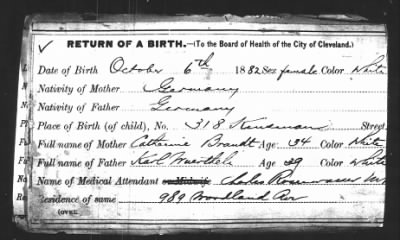 ✓ RETURN OF A BIRTH.—(To the Board of Health of the City of Cleveland.)
Date of Birth October 6th 1882 Sex female Color White
Nativity of Mother Germany
Nativity of Father Germany
Place of Birth (of child), No. 318 Street
Full name of Mother Catherine Brandt Age 34 Color White
Full name of Father Karl Age 39 Color White
Name of Medical Attendant or Midwife Charles Rosenwasser M
Residence of same 989 Woodland Av
(OVER.